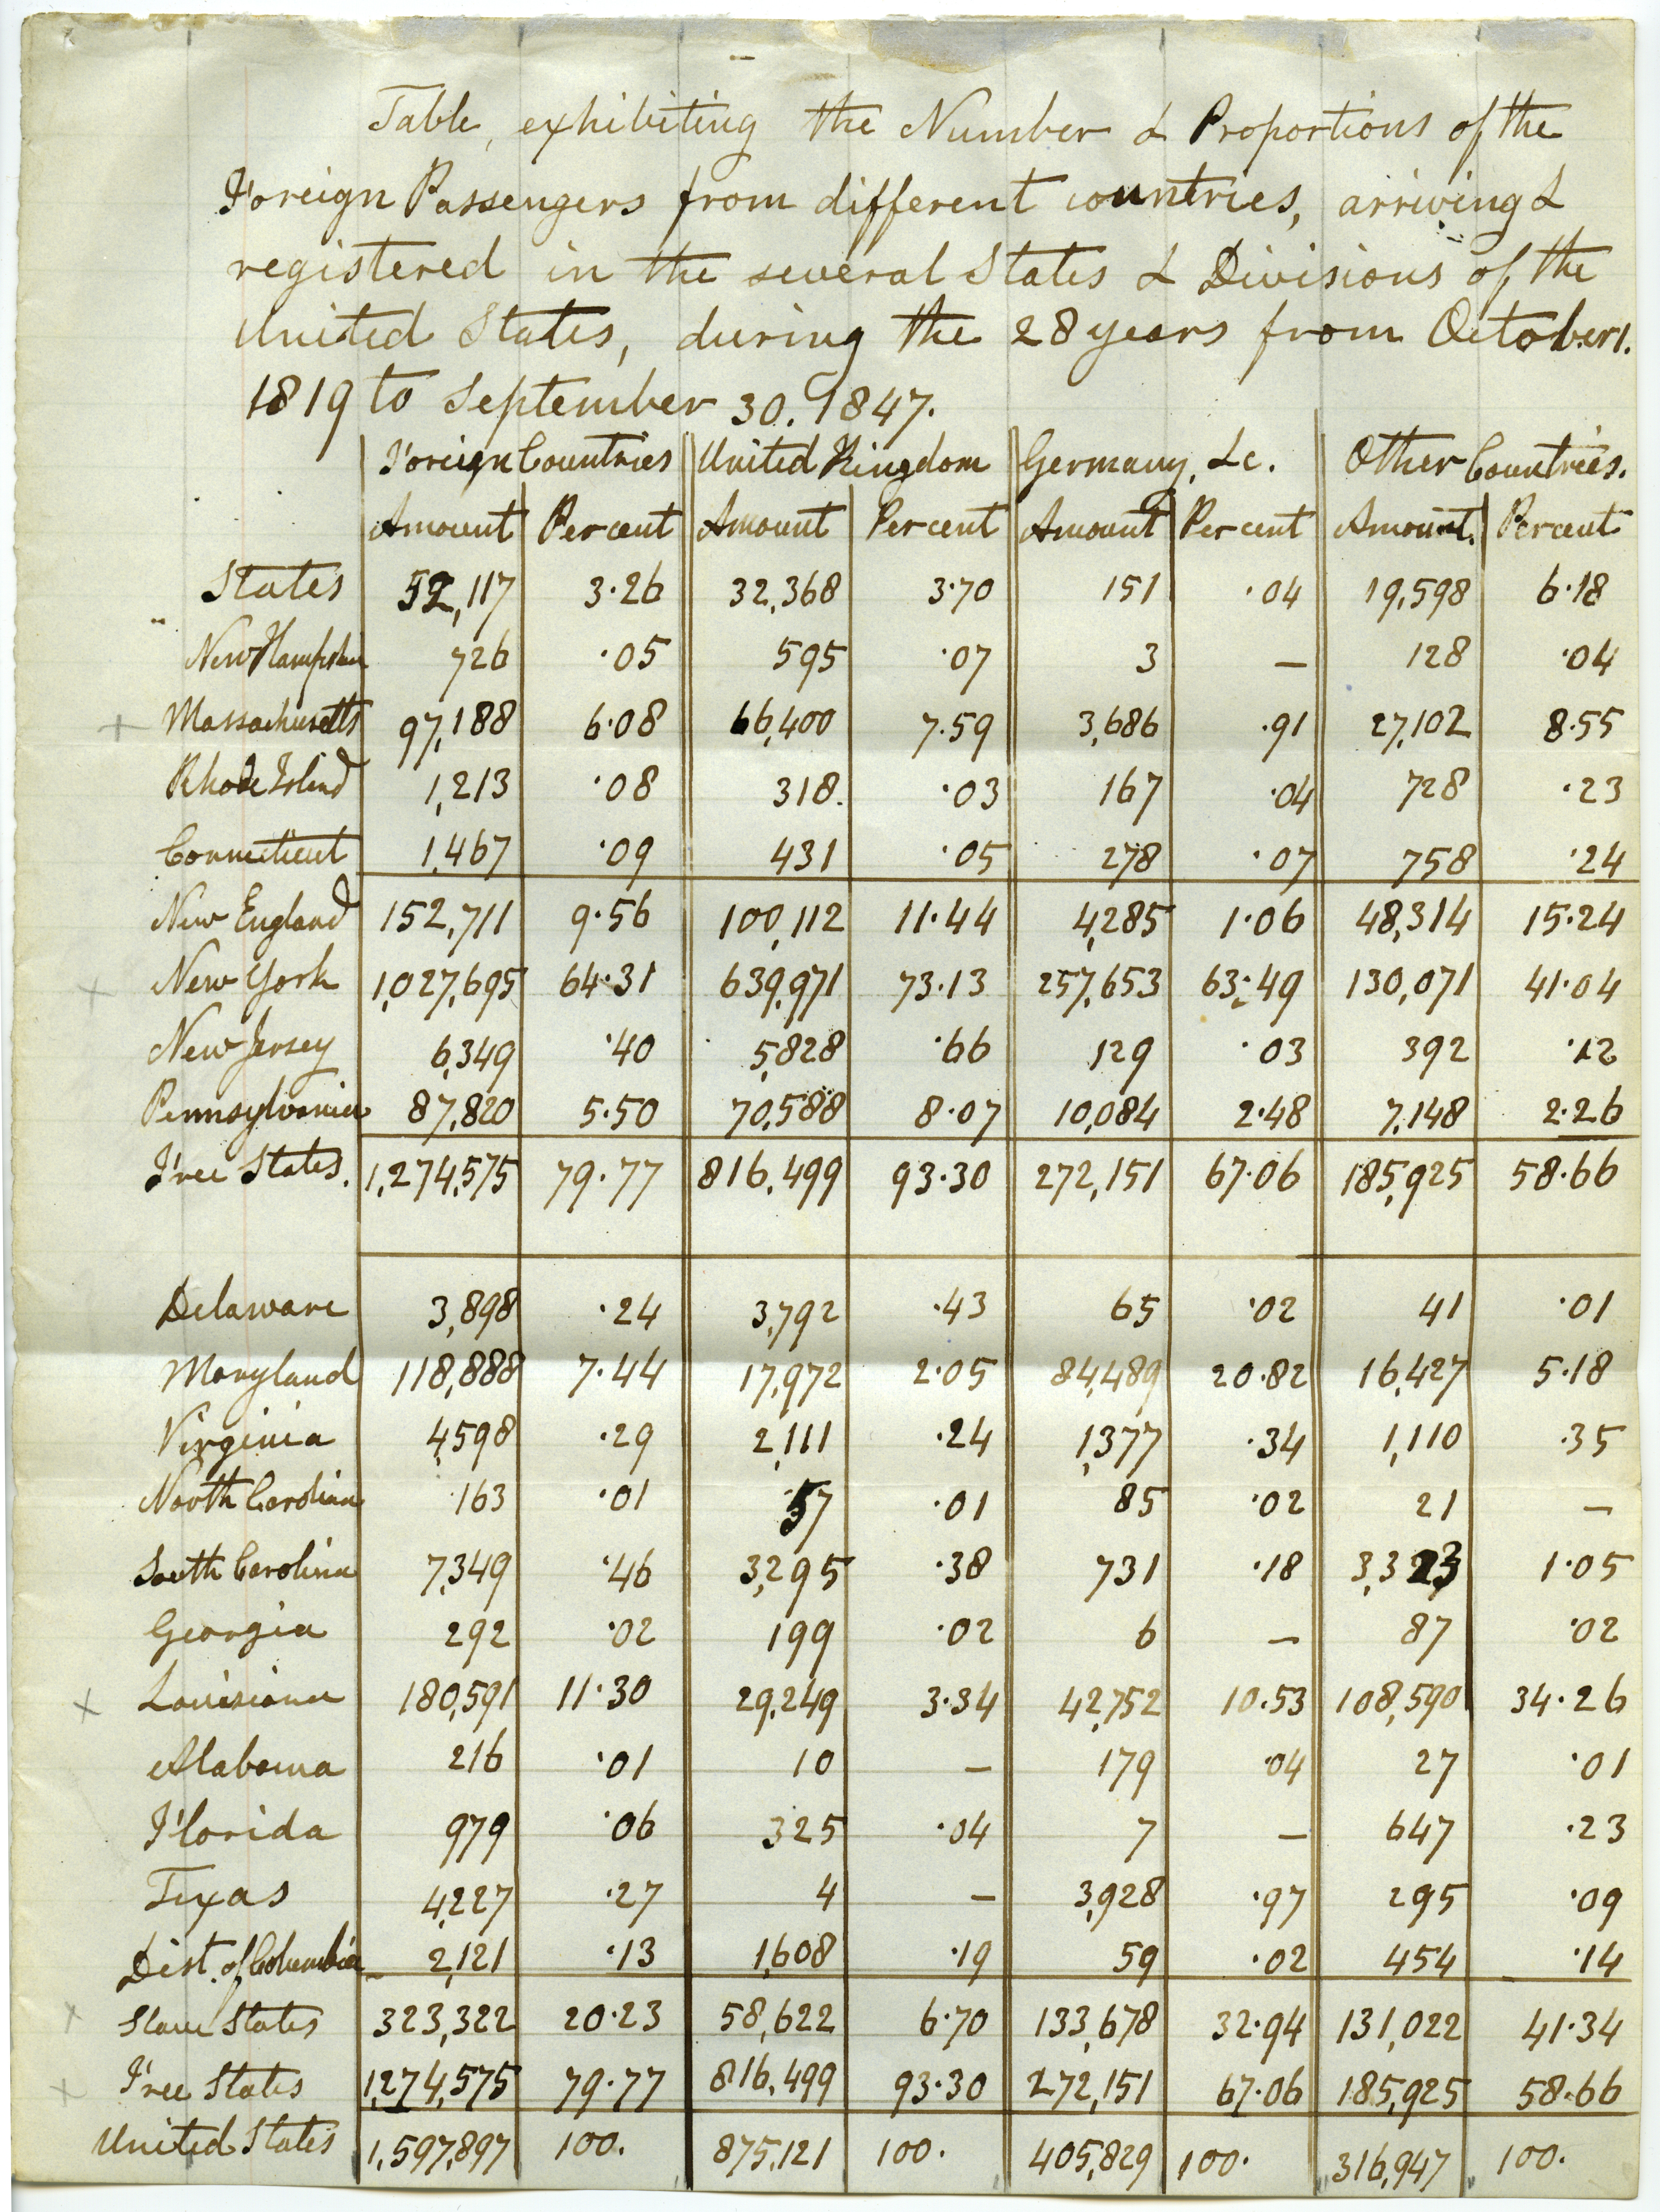 Table, exhibiting the Number & Proportions of the
Foreign Passengers from different countries, arriving &
registered in the several States & Divisions of the
United States, during the 28 years from October 1.
1819 to September 30. 1847.
Foreign Countries United Kingdom Germany, &c. Other Countries.
Amount Per cent Amount Per cent Amount Per cent Amount. Percent
States 52,117 3.26 32,368 3.70 151 .04 19,598 6.18
New Hampshire 726 .05 595 .07 3 — 128 .04
+ Massachusetts 97,188 6.08 66,400 7.59 3,686 .91 27,102 8.55
Rhode Island 1,213 .08 318. .03 167 .04 728 .23
Connecticut 1,467 .09 431 .05 278 .07 758 .24
New England 152,711 9.56 100,112 11.44 4,285 1.06 48,314 15.24
x New York 1,027,695 64.31 639,971 73.13 257,653 63.49 130,071 41.04
New Jersey 6,349 .40 5,828 .66 129 .03 392 .12
Pennsylvania 87,820 5.50 70,588 8.07 10,084 2.48 7,148 2.26
Free States. 1,274,575 79.77 816,499 93.30 272,151 67.06 185,925 58.66
Delaware 3,898 .24 3,792 .43 65 .02 41 .01
Maryland 118,888 7.44 17,972 2.05 84,489 20.82 16,427 5.18
Virginia 4,598 .29 2,111 .24 1,377 .34 1,110 .35
North Carolina 163 .01 57 .01 85 .02 21 —
South Carolina 7,349 .46 3,295 .38 731 .18 3,323 1.05
Georgia 292 .02 199 .02 6 — 87 .02
x Louisiana 180,591 11.30 29,249 3.34 42,752 10.53 108,590 34.26
Alabama 216 .01 10 — 179 .04 27 .01
Florida 979 .06 325 .04 7 — 647 .23
Texas 4,227 .27 4 — 3,928 .97 295 .09
Dist. of Columbia 2,121 .13 1,608 .19 59 .02 454 .14
x Slave States 323,322 20.23 58,622 6.70 133,678 32.94 131,022 41.34
x Free States 1,274,575 79.77 816,499 93.30 272,151 67.06 185,925 58.66
United States 1,597,897 100. 875,121 100. 405,829 100. 316,947 100.